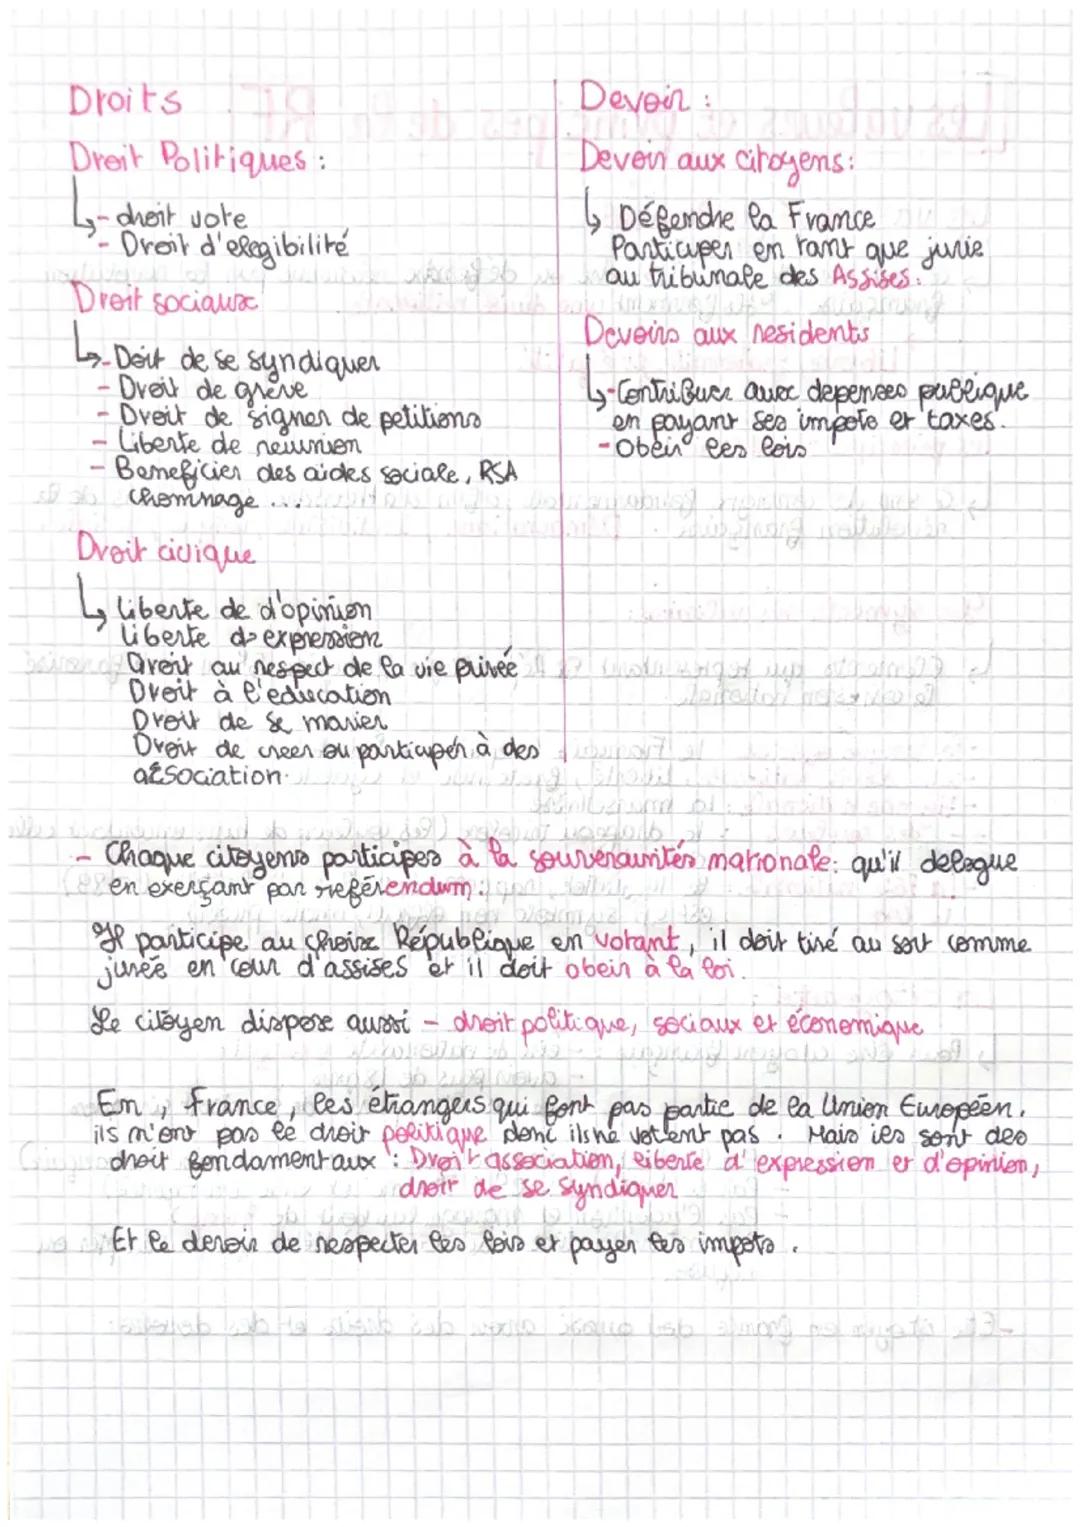 Droits
Droit Politiques :
- droit vote
- Droit d'elegibilité
Droit sociaux
- Doit de se syndiquer
- Droit de grève
- Droit de signer de petitions
- Liberte de reunion
- Beneficier des aides sociale, RSA
chommage ...
Droit civique
liberte de d'opinion
liberte d'expression
Droit au respect de la vie privée
Droit à l'education
Droit de se marier
Droit de creer ou participer à des
association.
Devoir :
Devoir aux citoyens :
Défendre la France
Participer en tant que jurie
au tribunale des Assises.
Devoirs aux residents
- Contribuer aux depenses publique
en payant ses impots et taxes.
- Obeir les lois
- Chaque citoyens participes à la souverainités nationale. qu'il delegue
en exerçant par referendum.
Il participe au choix République en votant, il doit tiré au sort comme
jurée en cour d'assises et il doit obeir à la loi.
Le citoyen dispose aussi - droit politique, sociaux et économique
En, France, les étrangers qui font pas partie de la Union Européen.
ils n'ont pas le droit politique donc ils ne votent pas. Mais ies sont des
droit fondamentaux : Droit association, liberte d'expression et d'opinion,
droit de se syndiquer
Et le devoir de respecter les lois et payer les impots.